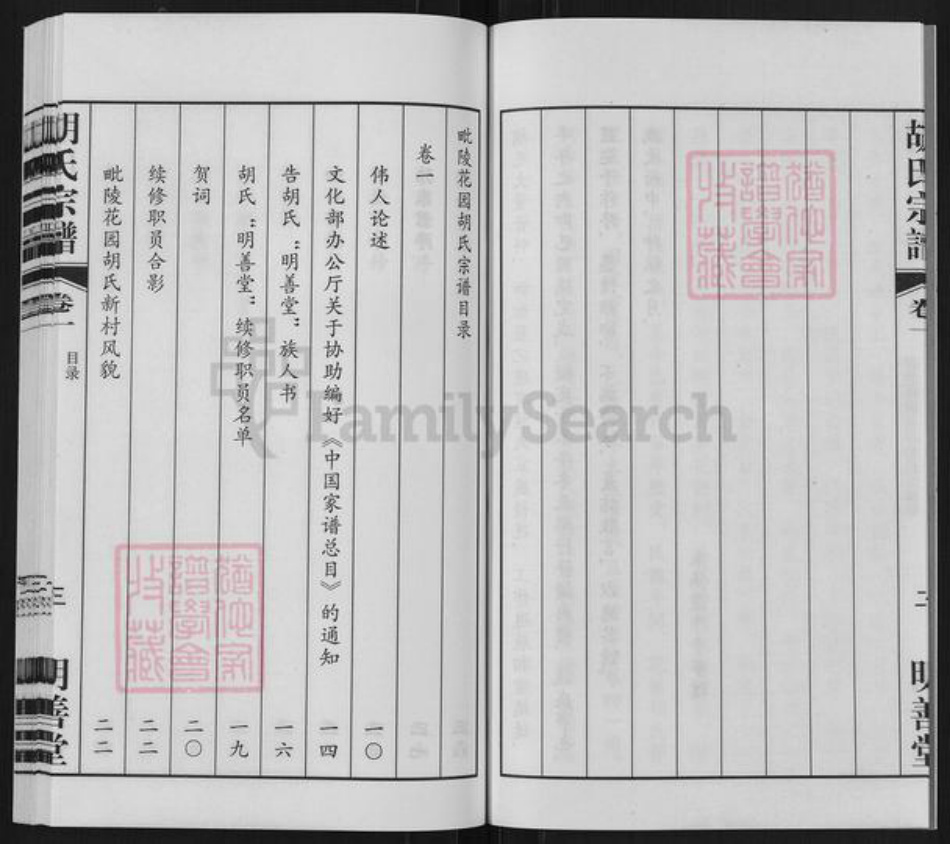 胡氏宗譜
卷一
二
明善堂
猶他家譜學會收藏
毗陵花园胡氏宗谱目录
卷一
伟人论述 一〇
文化部办公厅关于协助编好《中国家谱总目》的通知 一四
告胡氏“明善堂”族人书 一六
胡氏“明善堂”续修职员名单 一九
贺词 二〇
续修职员合影 二二
毗陵花园胡氏新村风貌 二二
胡氏宗譜
卷一
目录
三
明善堂
猶他家譜學會收藏
FamilySearch